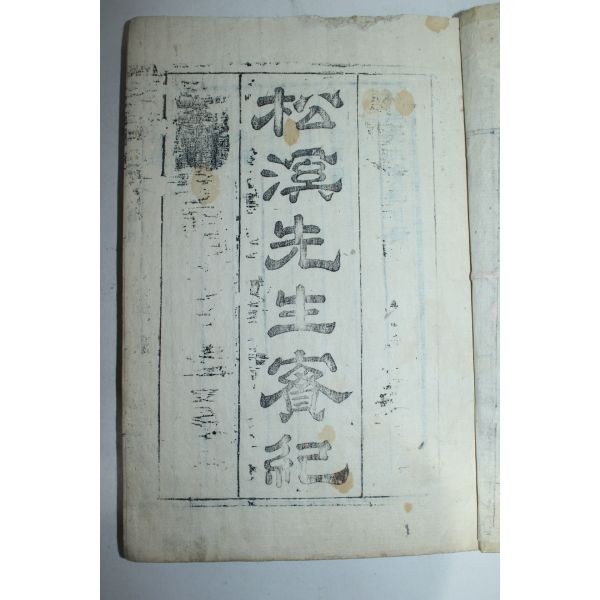 松溪先生實紀